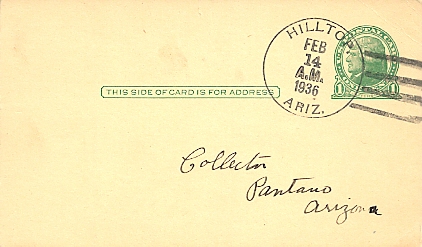 HILLTOP
FEB
14
A.M.
1936
ARIZ.
THIS SIDE OF CARD IS FOR ADDRESS
1 1
Collector
Pantano
Arizona